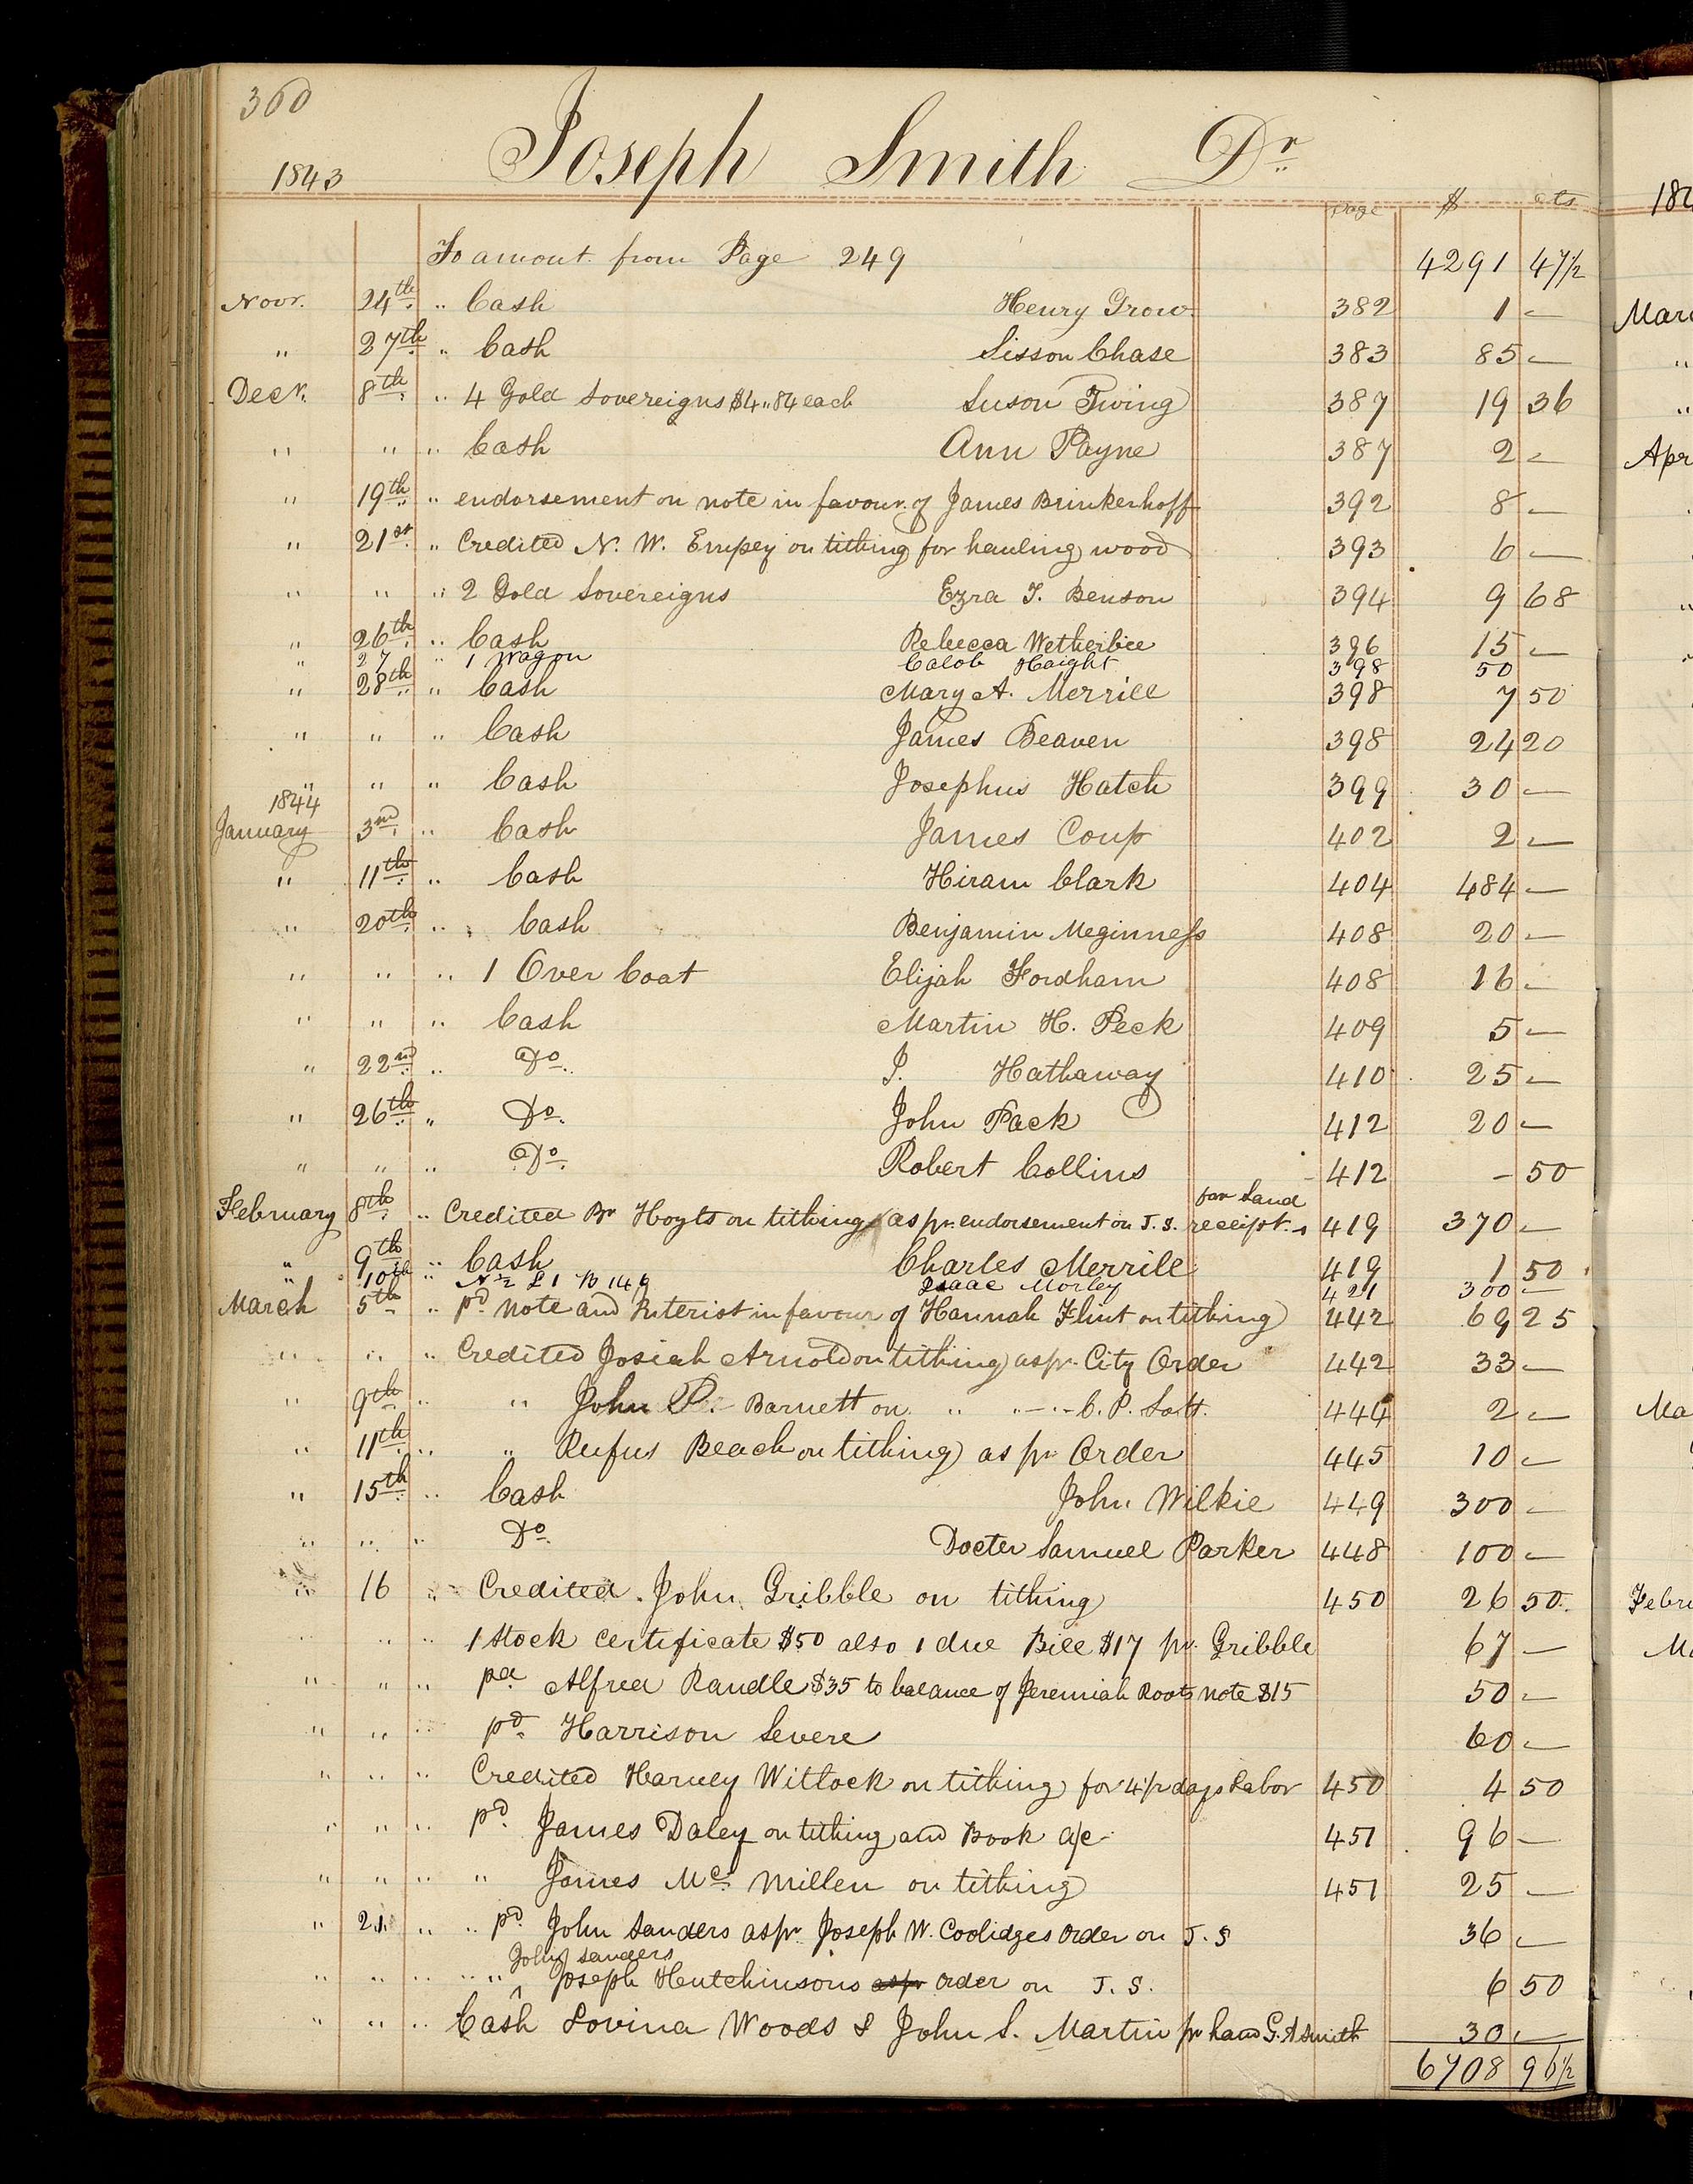 360
1843 Joseph Smith Dr.
page $ cts
To amout. from Page 249 4291 47½
Novr. 24th. " Cash Henry Grow 382 1 —
" 27th. " Cash Sisson Chase 383 85 —
Decr. 8th. " 4 Gold Sovereigns $4..84 each Suson Twing 387 19 36
" " " Cash Ann Payne 387 2 —
" 19th. " endorsement on note in favour. of James Brinkerhoff 392 8 —
" 21st. " Credited N. W. Empey on tithing for hauling wood 393 6 —
" " " 2 Gold Sovereigns Ezra T. Benson 394 9 68
" 26th. " Cash Rebecca Wetherbee 396 15 —
" 27 " 1 Wagon Calob Haight 398 50
" 28th. " Cash Mary A. Merrill 398 7 50
" " " Cash James Beaven 398 24 20
" " " Cash Josephus Hatch 399 30 —
1844
January 3rd. " Cash James Coup 402 2 —
" 11th. " Cash Hiram Clark 404 484 —
" 20th. " Cash Benjamin Meginness 408 20 —
" " " 1 Over Coat Elijah Fordham 408 16 —
" " " Cash Martin H. Peck 409 5 —
" 22nd. " Do. I. Hathaway 410 25 —
" 26th. " Do. John Pack 412 20 —
" " " Do. Robert Collins 412 – 50
for Land
February 8th. " Credited Br Hoyts on tithing as pr. endorsement on J. S. receipt. 419 370 —
" 9th " Cash Charles Merrill 419 1 50
" 10th " N½ L 1 B 149 Isaac Morley 421 300 —
March 5th " pd note and Interist in favour of Hannah Flint on tithing 442 69 25
" " " Credited Josiah Arnold on tithing as pr. City Order 442 33 —
" 9th " " John P. Barnett on " " C. P. Lott. 444 2 —
" 11th. " " Rufus Beach on tithing as pr Order 445 10 —
" 15th. " Cash John Wilkie 449 300 —
" " " Do. Docter Samuel Parker 448 100 —
" 16 " Credited. John Gribble on tithing 450 26 50
" " " 1 Stock certificate $50 also 1 due Bill $17 pr. Gribble 67 —
" " " pd Alfred Randle $35 to balance of Jeremiah Roots note $15 50 —
" " " pd. Harrison Severe 60 —
" " " Credited Harvey Witlock on tithing for 4½ days Labor 450 4 50
" " " pd. James Daley on tithing and Book a/c 451 96 —
" " " " James Mc. Millen on tithing 451 25 —
" 21 " " pd. John Sanders as pr Joseph W. Coolidges Order on J. S 36 —
John Sanders
" " " " " Joseph Hutchinsons as pr order on J. S. 6 50
" " " Cash Lovina Woods & John S. Martin pr hand G. A Smith 30 —
6708 96½
184
Marc
"
"
Apr
"
"
Ma
Febru
Ma